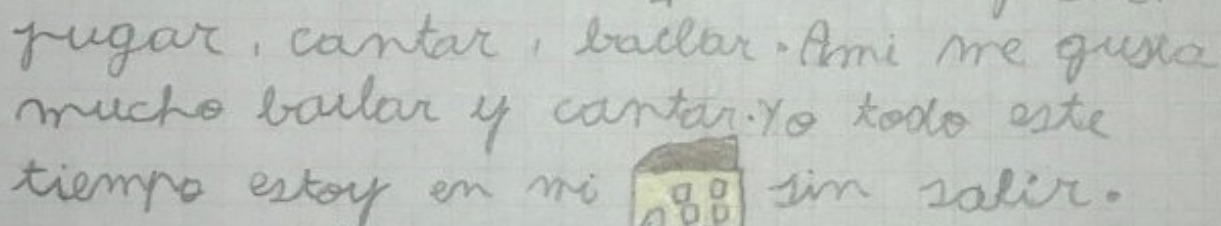 jugar, cantar, bailar. Ami me gusta
mucho bailar y cantar. Yo todo este
tiempo estoy en mi sin salir.